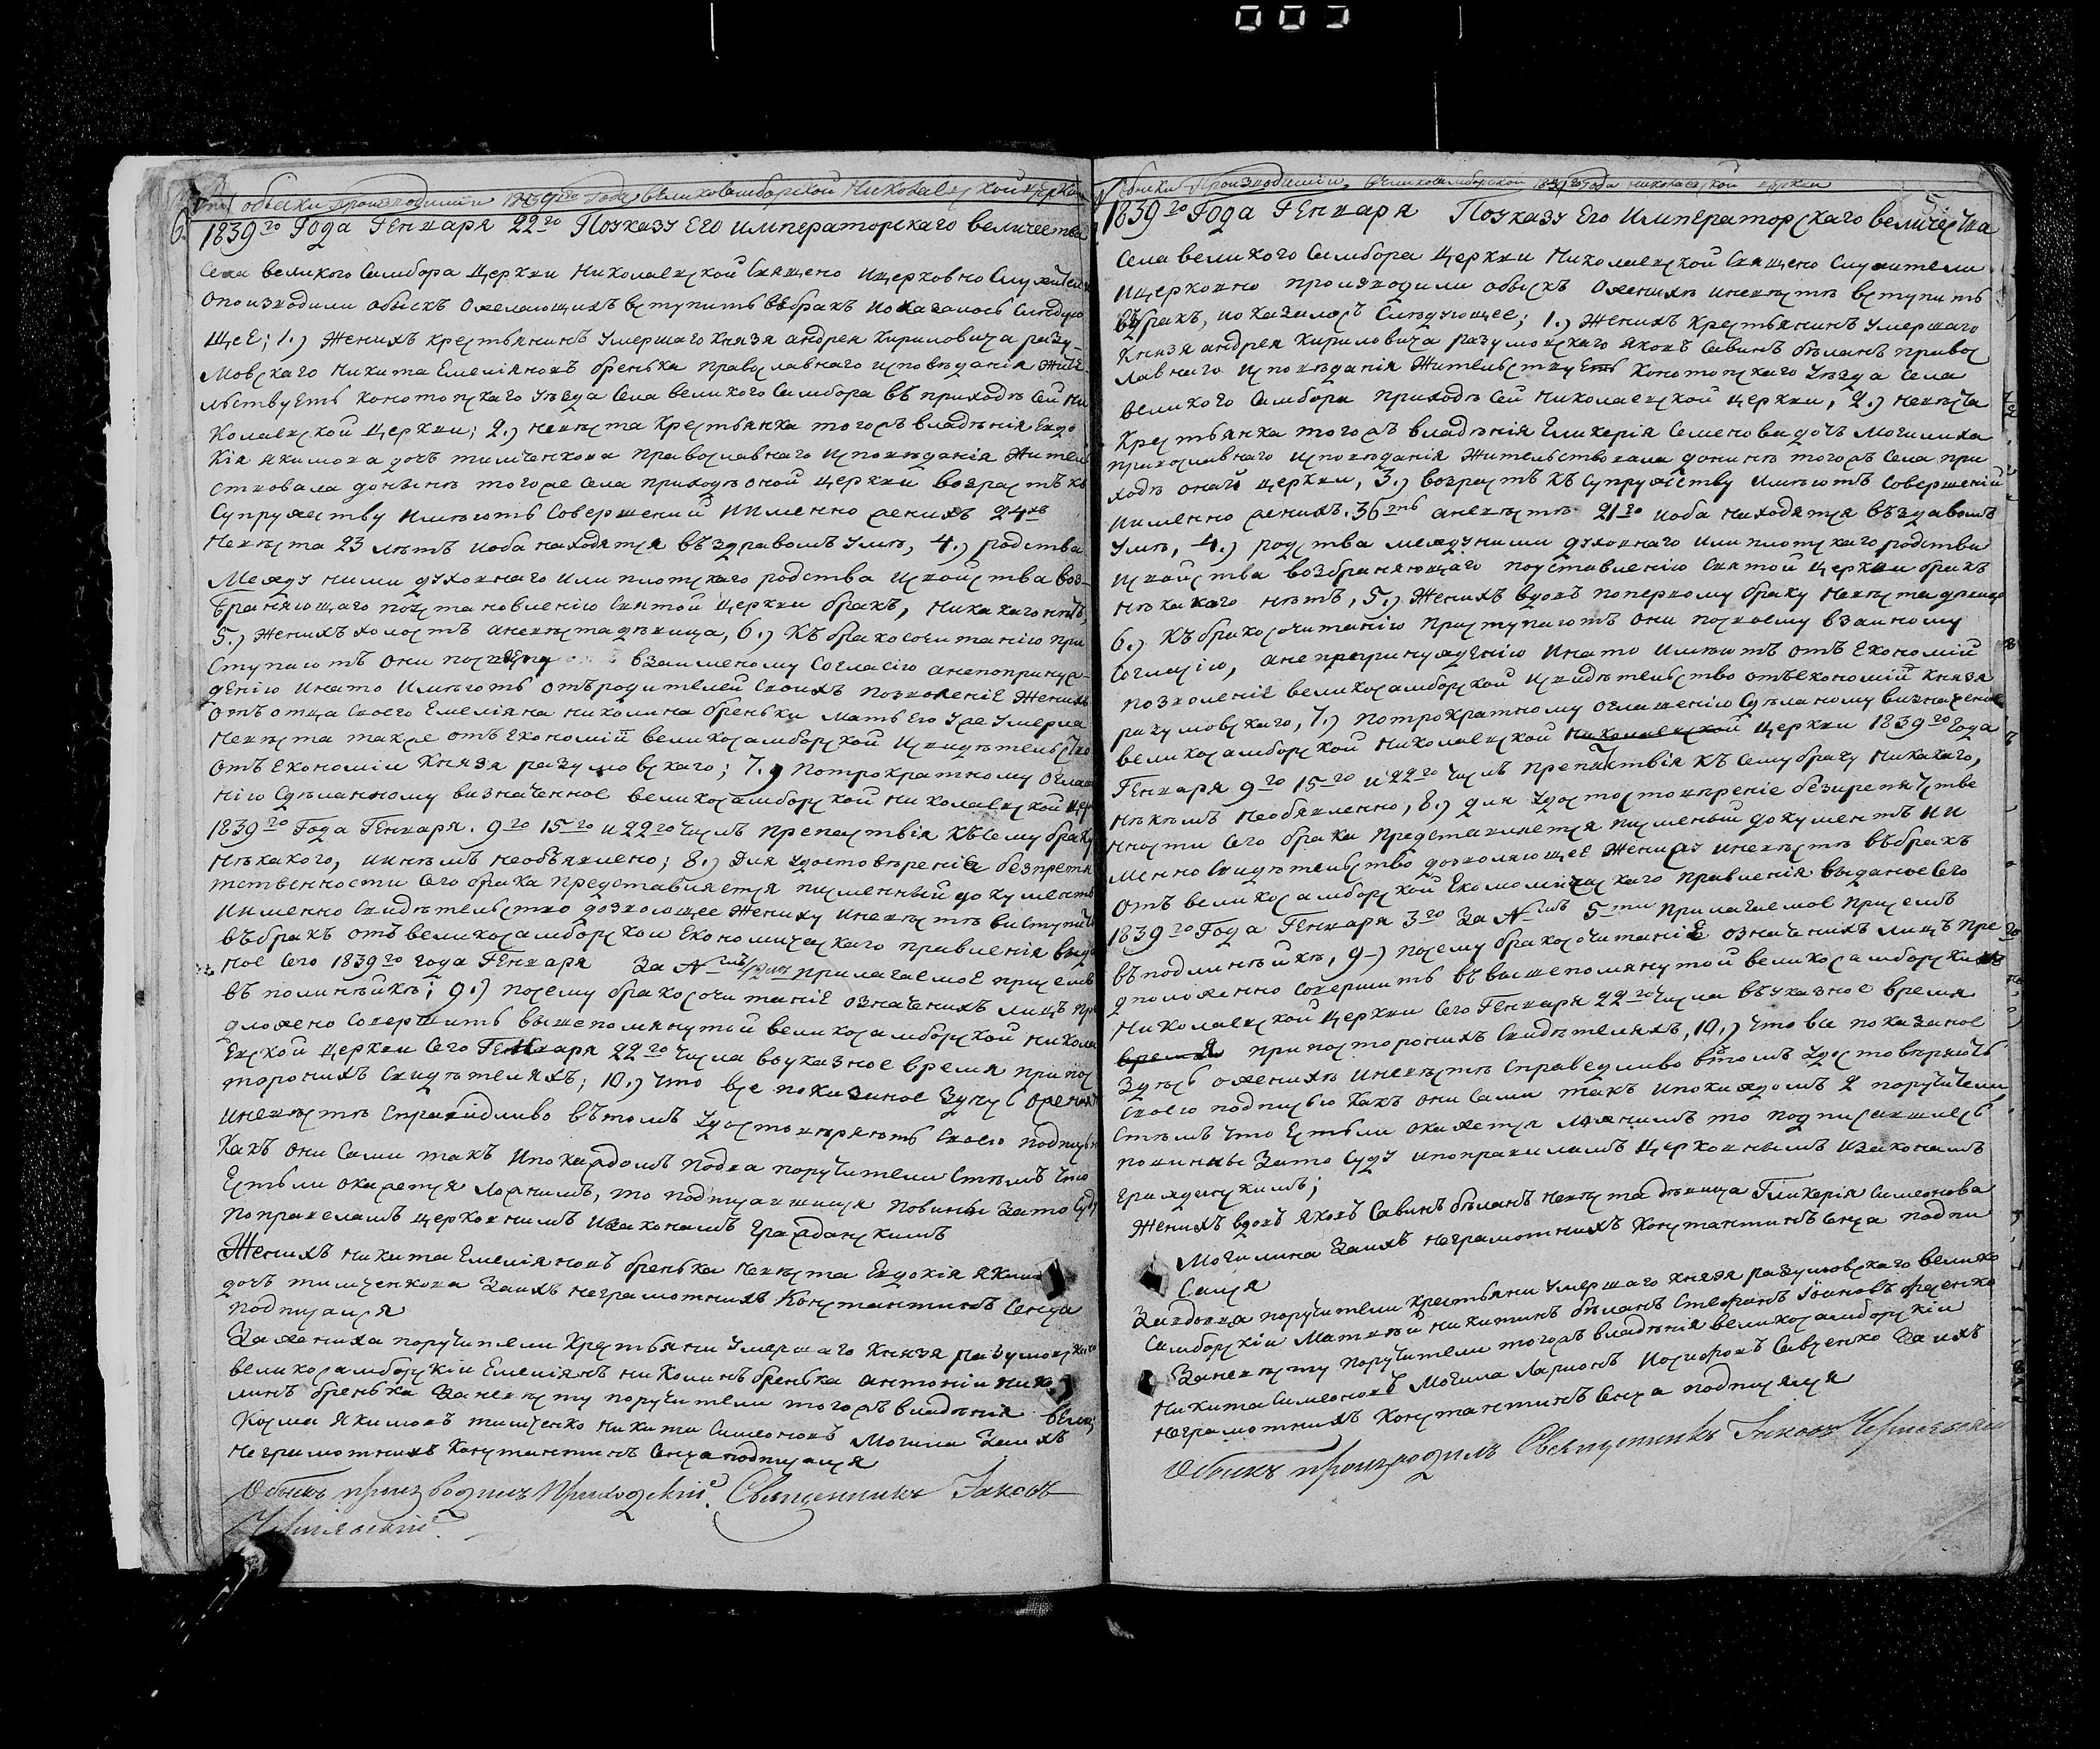 обыски производимыи 1839го года великосамборской Николаевской церкви
6. 1839го Года Генваря 22го По указу Его императорскаго величества
села великого Самбора церкви Николаевской Священо ицерковно Служители
опоизводили обыскъ Ожелающихъ вступить въбракъ иоказалось Следую
щее; 1.) Женихъ крестьянинъ умершаго князя андрея кириловича разу-
мовскаго Никита Емеліяновъ бренька православнаго исповѣданія жите
льствуетъ конотопскаго уезда Села великого Самбора въ приходѣ сей Ни
колаевской церкви; 2.) невѣста крестьянка тогожъ владѣнія Евдо
кія якимова дочъ тимченкова православнаго исповѣданія Жител
ствовала донынѣ тогоже села приходѣ оной церкви возрастъ къ
Супружеству имѣютъ Совершений иименно женихъ 24хъ
невѣста 23 лѣтъ иоба находятся въздравомъ умѣ, 4.) родства
Между ними духовнаго или плотскаго родства исвойства воз-
браняющаго поустановленію Святой церкви бракъ, никакаго нѣтъ,
5.) женихъ холостъ аневѣстадѣвица, 6.) Къ бракосочитанію при
ступаютъ они по взаимному Согласію анепопринуж-
денію инато имѣютъ отъродителей своихъ позволеніе Женихъ
отъ отца своего Емеліяна николина бреньки мать его уже умерла
невѣста также отъ економій великосамборской исвидѣтельство
отъ економіи князя разумовскаго; 7.) потрократному оглаше
нію сдѣланному визначенное великосамборской николаевской цер
1839го Года Генваря. 9го 15го и 22го числъ препятствія къ сему браку
нѣкакого, инѣкѣмъ необъявлено; 8.) Для удостовѣреніе безпрепя
тственности сего брака представляется писменный документъ
иименно свидѣтельство дозволющее жениху иневѣстѣ вступить
въбракъ отъ великосамборской економическаго правленія выда
ное сего 1839го года Генваря За №мъ прилагаемое присемъ
въ полинникѣ; 9.) посему бракосочитаніе означенихъ лицъ пре
дложено совершить вышепомянутой великосамборской никола
евской церкви сего Генваря 22го числа воуказное время припос
торонихъ свидѣтеляхъ; 10.) что все показаное здесь ожених
иневѣстѣ справидливо вътомъ удостовѣряютъ своею подписю
какъ они сами такъ ипокаждомъ подва поручители стѣмъ что
Естьли окажется ложнимъ, то подписавшиися повинны зато суду
поправеламъ церковнимъ изаконамъ гражданскимъ
Женихъ никита Емеліяновъ бренька невѣста Евдокія яким
дочъ тимченкова заихъ неграмотнихъ Константинъ Сенца
подписался
Зажениха поручители крестьяни умершаго князя разумовскаго
великосамборскіи Емеліянъ николинъ бренька антоніи нико
линъ бренька заневѣсту поручители тогожъ владѣнія вели
Козма якимовъ тимченко никита симеоновъ могила заихъ
неграмотнихъ константинъ Сенца подписался
Обыскъ производилъ Приходскій Священникъ Іаковъ
Чернявскій.
Обыски производимыи великосамборской 1839го года николаевской церкви
1839го Года Генваря По указу Его императорскаго величества
села великого Самбора церкви Николаевской Священо служители
ицерковно производили обыскъ Оженихѣ иневѣстѣ вступить
въбракъ, иоказалось Слѣдующее; 1.) Женихъ крестьянинъ умершаго
князя андрея кириловича разумовскаго яковъ савинъ бѣланъ правос
лавнаго исповѣданія жительствуетъ конотопскаго уезда села
великого Самбора приходѣ сей николаевской церкви, 2.) невѣста
крестьянка тогожъ владѣнія Гликерія семенова дочъ могилина
православнаго исповѣданія жительствовала донинѣ тогожъ села при
ходѣ оной церкви, 3.) возрастъ къ супружеству имѣютъ совершений
иименно женихъ. 36ть аневѣстѣ 21го иоба находятся въздавомъ
умѣ, 4.) родства между ними духовнаго или плотскаго родства
исвойства возбраняющаго поуставленію святой церкви бракъ
нѣкакаго нѣтъ, 5.) Женихъ вдовъ поперкому браку невѣста дѣвица
6.) къ бракосочитанію приступаютъ они по своему взаимному
согласію, анепопринужденію инато имѣютъ отъ економій
позволеніе великосамборской исвидѣтельство отъекономій князя
разумовскаго, 7.) потрократному оглашенію сдѣланому визначеное
великосамборской николаевской николаевской церкви 1839го года
Генваря 9го 15го и 22го числъ препятствія къ сему браку никакаго,
нѣкѣмъ необявленно, 8.) для удостовѣреніе безпрепятстве
ности сего брака представляется писменый документъ ии
менно свидѣтельство дозволяющее жениху иневѣстѣ въбракъ
отъ великосамборской економическаго правленія выданое сего
1839го года Генваря 3го за №мъ 5ти прилагаемое присемъ
въподлинникѣ, 9.) посему бракосочитаніе означенихъ лицъ пре
дположенно совершить въвышепомянутой великосамборский
николаевской церкви сего Генваря 22го числа въуказное время
время припосторонихъ свидѣтеляхъ, 10.) что все показаное
здѣсь оженихѣ иневѣстѣ справедливо втомъ удостовѣряютъ
своею подписью какъ они сами такъ ипокаждомъ 2 поручители
стѣмъ что естьли окажется лжнимъ то подписавшиесь
повинны зато суду ипоправиламъ церковнымъ изаконамъ
гражданскимъ;
Женихъ вдовъ яковъ Савинъ бѣланъ невѣста дѣвица Гликерія симеонова
могилина заихъ неграмотнихъ Константинъ Сенца подпи
сался
Завдовца поручители крестьяни умершаго князя разумовскаго велико
самборскіи Матвѣй никитинъ бѣланъ Стефанъ Іоановъ
Заневѣсту поручители тогожъ владѣнія великосамборскіи
никита симеоновъ могила Ларионъ иосифовъ Савченко заихъ
неграмотнихъ константинъ Сенца подписался
Обыскъ производилъ Священникъ Іаковъ Чернявскій